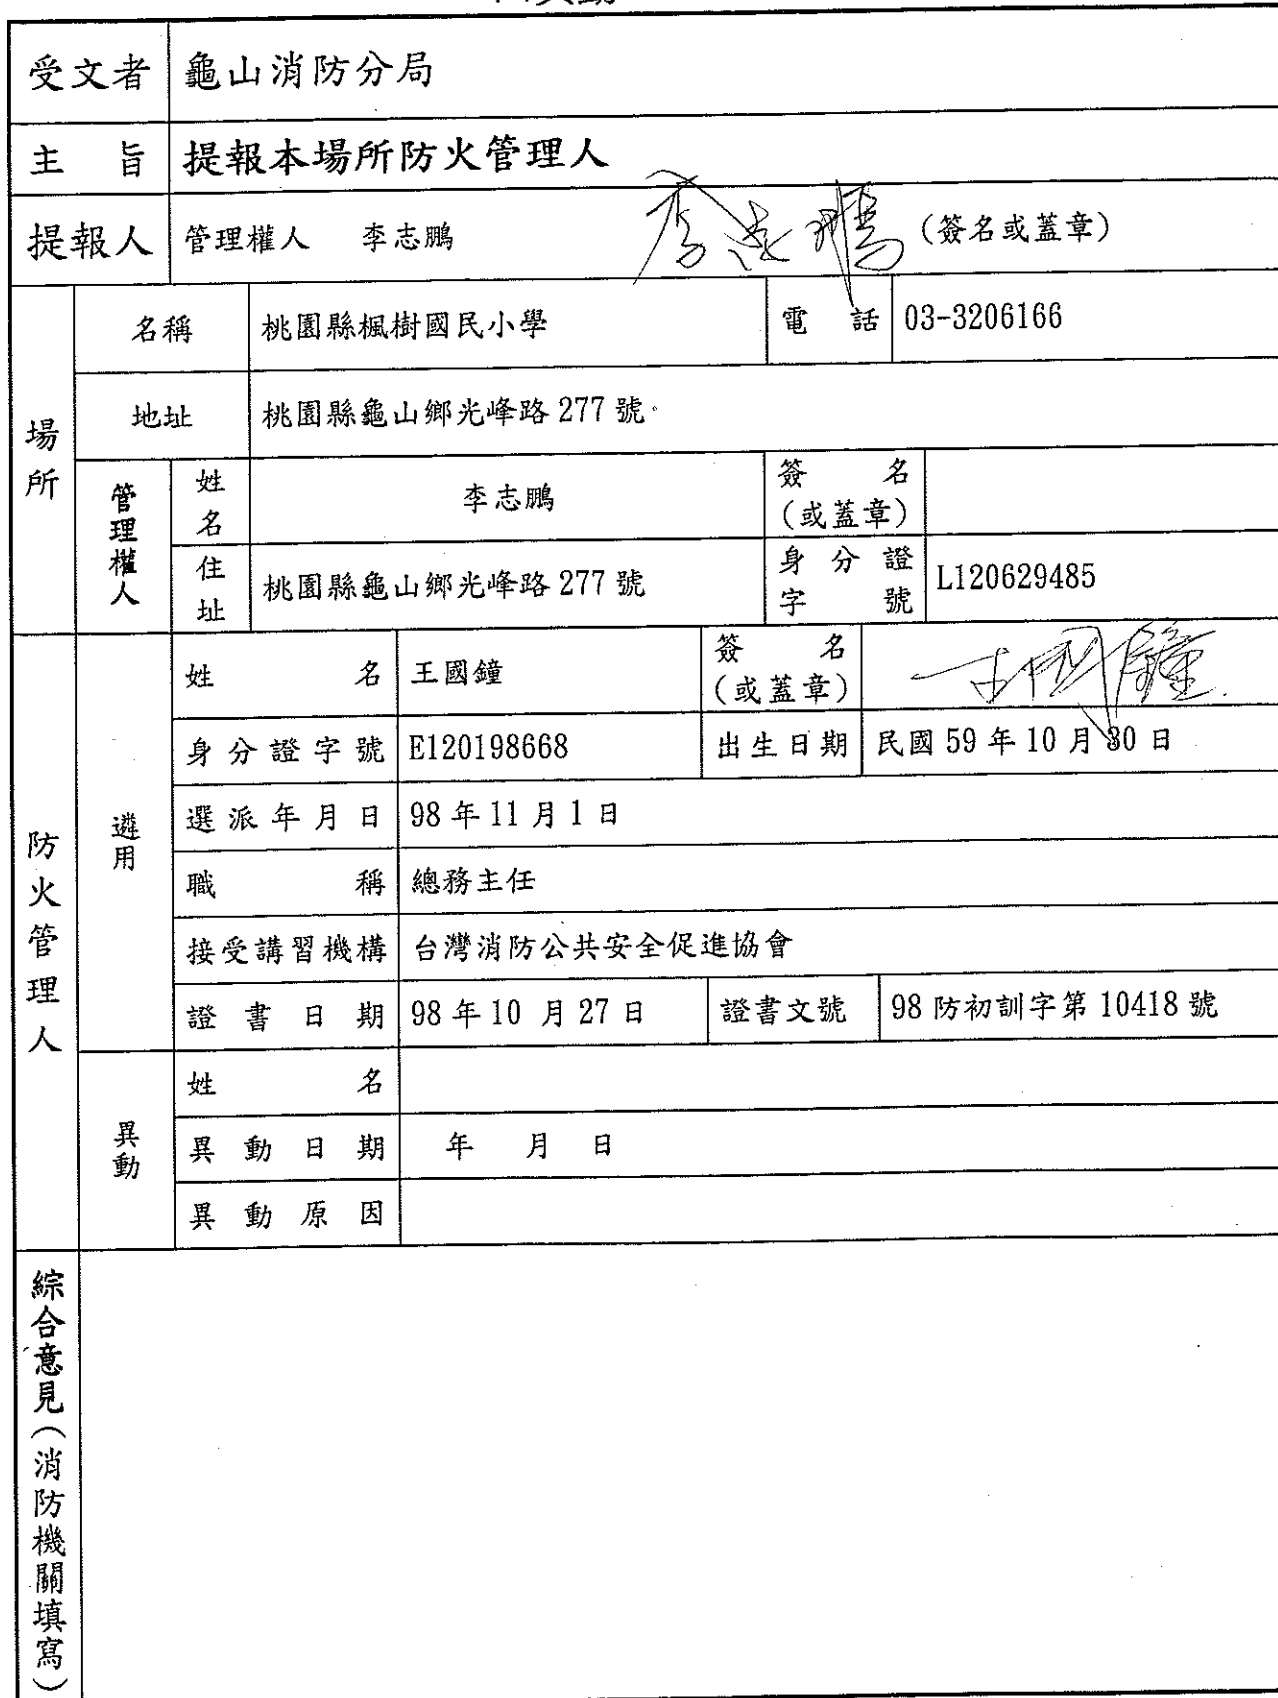 受文者 龜山消防分局
主旨 提報本場所防火管理人
提報人 管理權人 李志鵬 李志鵬 (簽名或蓋章)
場所 名稱 桃園縣楓樹國民小學 電話 03-3206166
地址 桃園縣龜山鄉光峰路 277 號
管理權人 姓名 李志鵬 簽名(或蓋章)
住址 桃園縣龜山鄉光峰路 277 號 身分證字號 L120629485
防火管理人 遴用 姓名 王國鐘 簽名(或蓋章) 王國鐘
身分證字號 E120198668 出生日期 民國 59 年 10 月 30 日
選派年月日 98 年 11 月 1 日
職稱 總務主任
接受講習機構 台灣消防公共安全促進協會
證書日期 98 年 10 月 27 日 證書文號 98 防初訓字第 10418 號
異動 姓名
異動日期 年 月 日
異動原因
綜合意見(消防機關填寫)